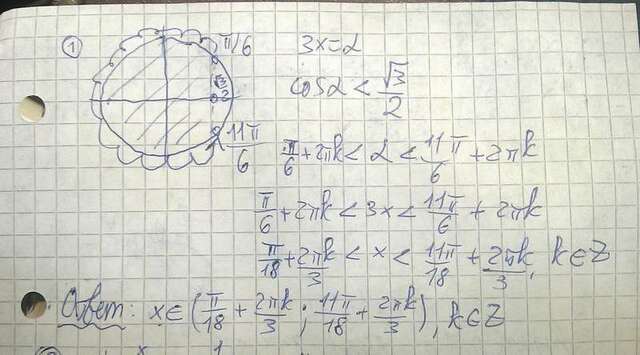 ① π/6 3x=α
√3/2 cosα < √3/2
11π/6 π/6+2πk < α < 11π/6 + 2πk
π/6+2πk < 3x < 11π/6 + 2πk
π/18+2πk/3 < x < 11π/18 + 2πk/3, k∈Z
Ответ: x∈(π/18 + 2πk/3 ; 11π/18 + 2πk/3), k∈Z